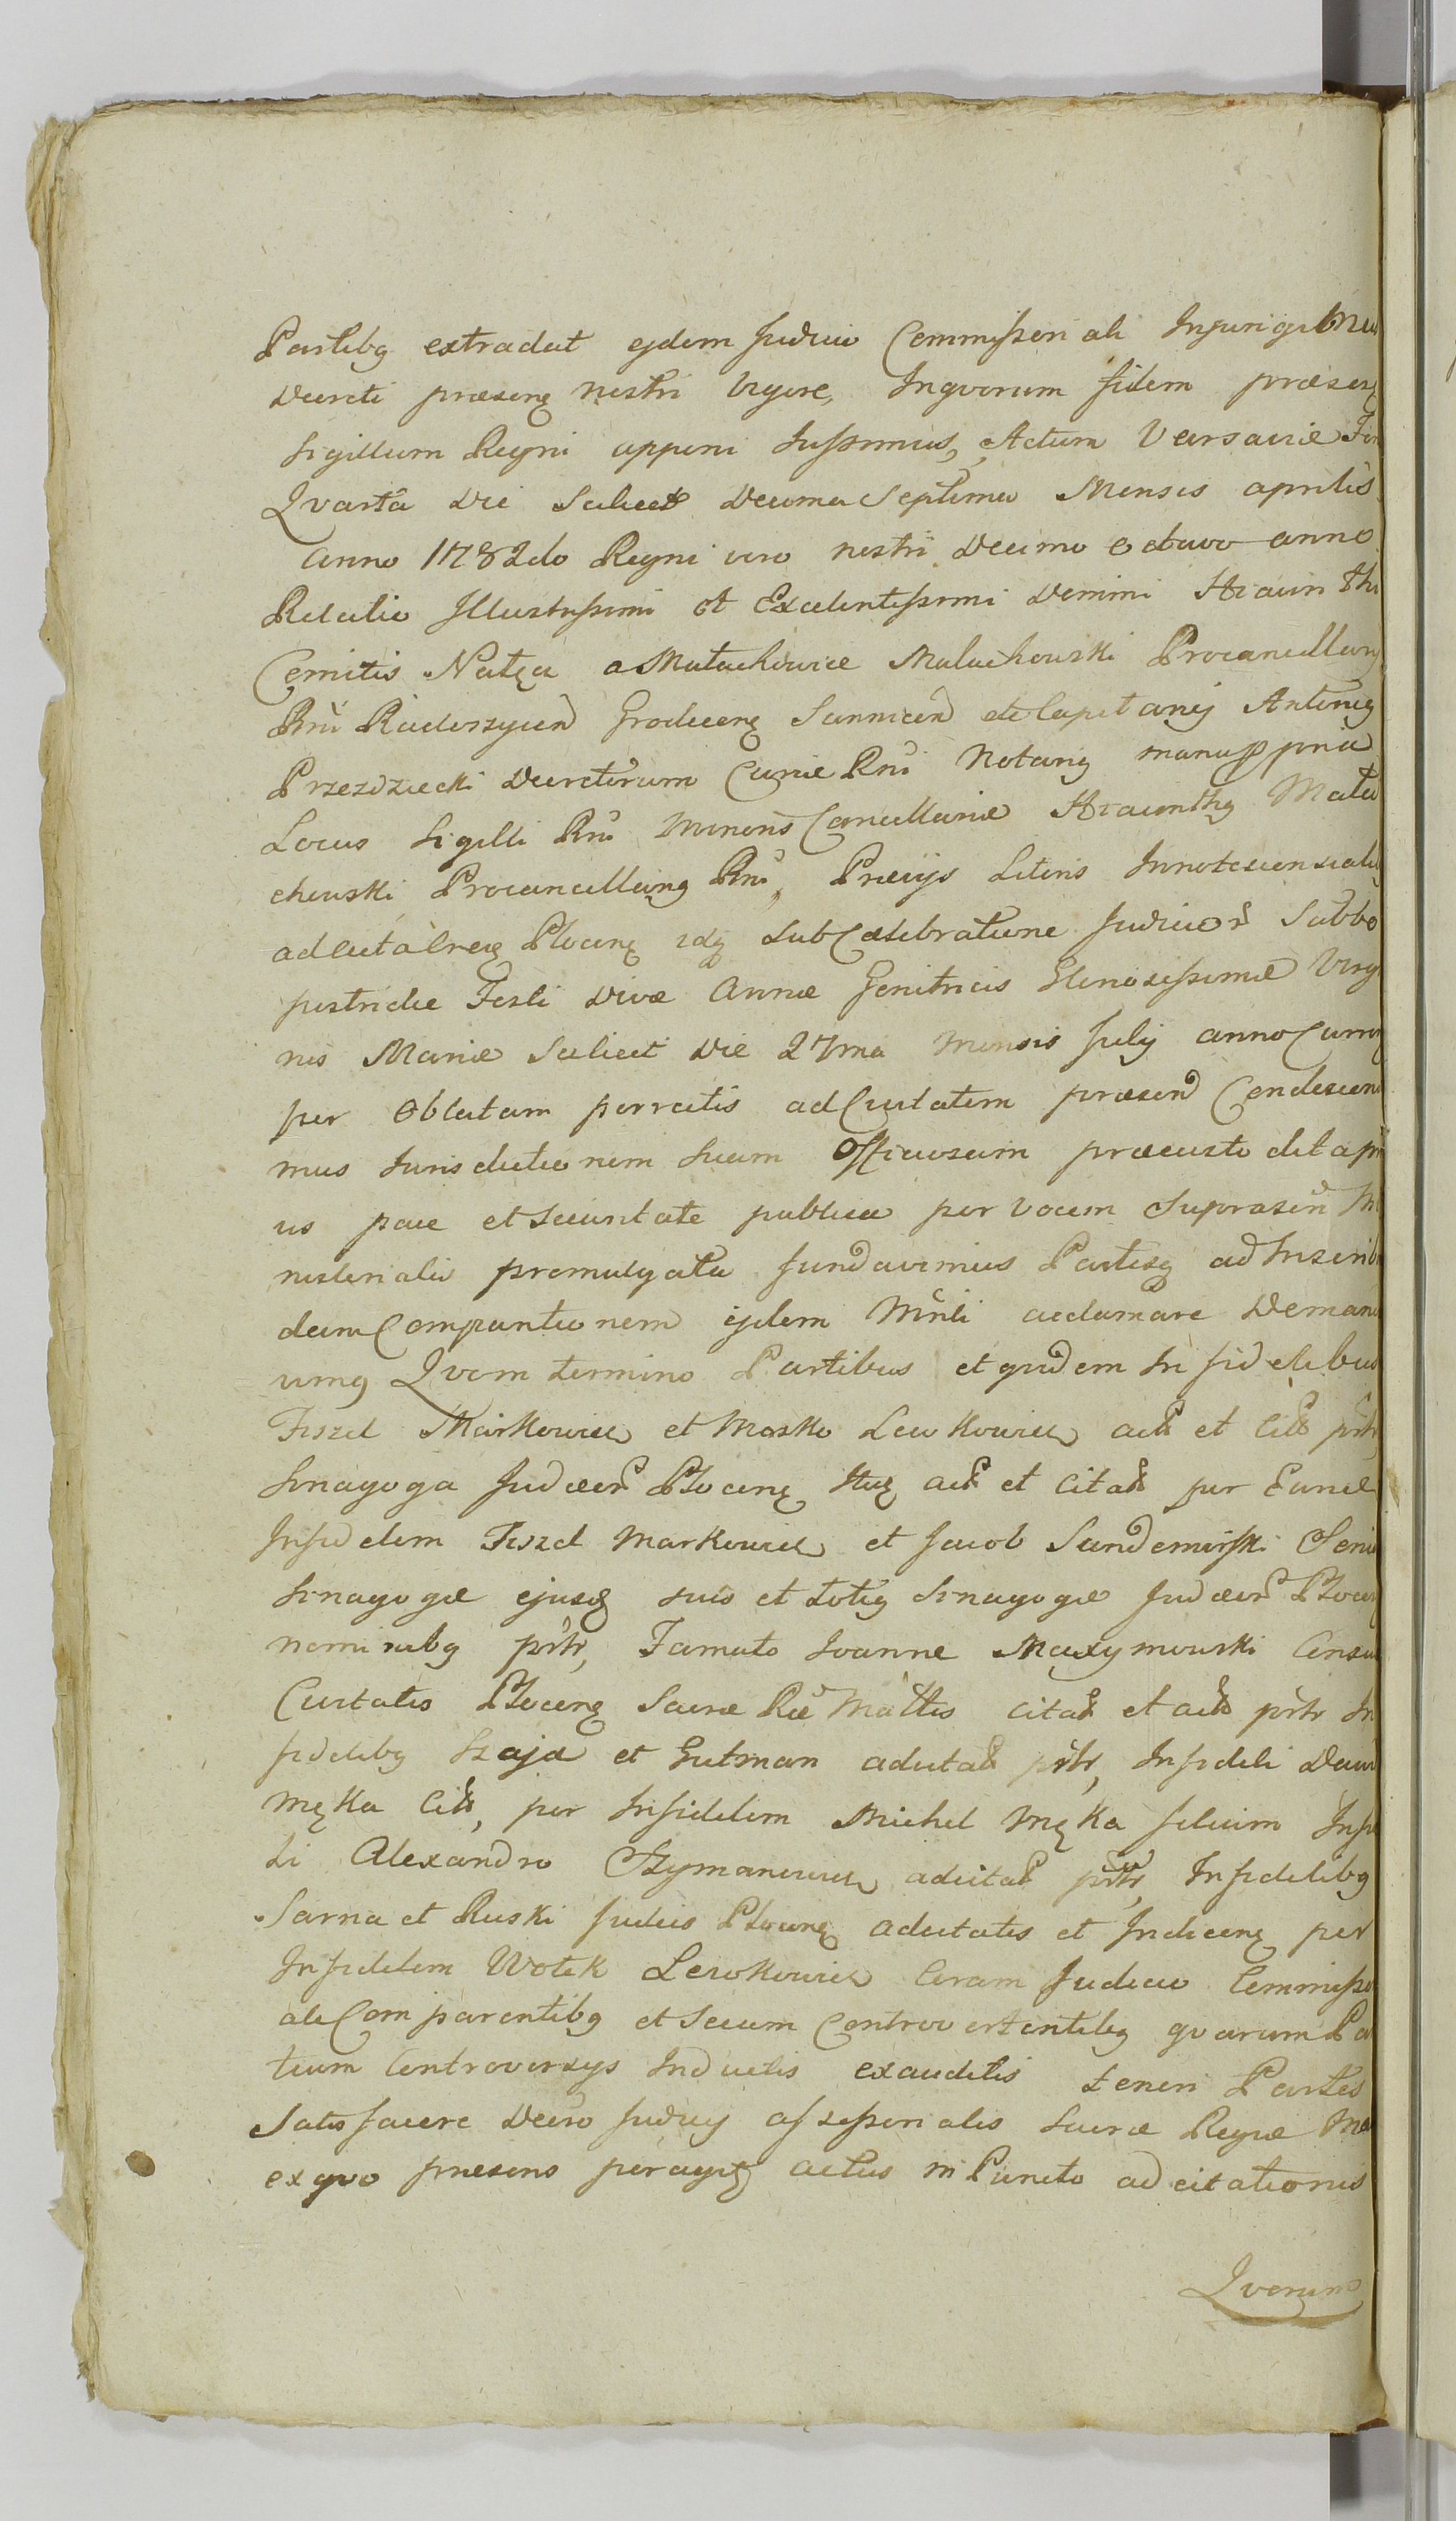 Partibg extradat ejdem Judicio Commissoriali Injurigilmus
Decreti præseng nostri Vigore, Inqvorum fidem præseng
Sigillum Regni apponi Jussimus, Actum Varsaviæ Fer
Qvarta Die Scilicet Decima Septima Mensis aprilis
anno 1782do Regni vero nostri Decimo octavo anno
Relatio Illustrissimi et Excelentissimi Domini Hiacin thi
Comitis Natęcz a Małachowice Małachowski Procancellarg
Rni Radoszycen Grodeceng Sannicen etc Capitanij Antonig
Przezdziecki Decretorum Curiæ Rni Notarig manu ppria
Locus Sigilli Rni Minoris Cancellariæ Hiacinthg Mała
chowski Procancellarig Rni, Prævijs Literis Innotescensiali
ad Civitatreg Ploceng idq sub Cælebratione Judicior Sabbo
postridie Festi Divæ Annæ Genitricis Gloriosissimæ Virg
nis Mariæ Scilicet Die 27ma Mensis Julij anno Curren
per Oblatam porrectis ad Civitatem præsen Condescen
mus Jurisdictionem suam Officiosam præcustodita pri
us pace et securitate publica per vocem Suprascrin Mi
nisterialis promulgata fundavimus Partesq ad Inscrib
dam Comparitionem ejdem Mnli acclamare Deman
vimg Qvom termino Partibus et qvidem Infidelibus
Fiszel Markowicz et Moszko Lewkowicz act et Cit prtr
Sinagoga Judæor Ploceng Itaq act et Citat per Eund
Infidelem Fiszel Markowicz et Jacob Sandomirski Senio
Sinagogæ ejusq suis et totig Sinagogæ Judæor Płoceng
nominibg prtr, Famato Joanne Maxymowski Consu
Civitatis Ploceng Sacræ Ræ Mattis Citat et act prtr In
fidelibg Szaja et Gutman adcitat prtr, Infideli Dawi
Męka Cit, per Infidelem Michel Męka filium Infi
li Alexandro Szymanowicz adcitat prtr, Infidelibg
Sarna et Ruski Judeis Ploceng adcitatis et Indiceng per
Infidelem Wolek Lewkowicz Coram Judicio Commisso
ali Comparentibg et Secum Controvertentibg qvarum Par
tium Controversys Inductis exauditis teneri Partes
Satisfacere Decro Judicij assessorialis Sacræ Regiæ Ma
exqvo præsens peragitg actus in Puncto adcitationis
Qvorum